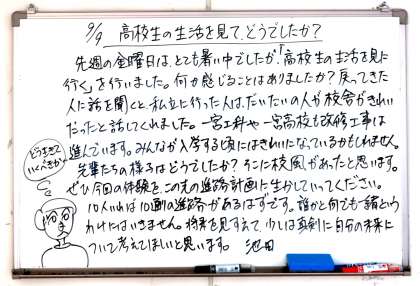 9/9 高校生の生活を見て、どうでしたか？
先週の金曜日は、とても暑い中でしたが、「高校生の生活を見に
行く」を行いました。何か感じることはありましたか？戻ってきた
人に話を聞くと、私立に行った人は、だいたいの人が校舎がきれい
だったと話してくれました。一宮工科や一宮高校も改修工事は
進んでいます。みんなが入学する頃にはきれいになっているかもしれません。
先輩たちの様子はどうでしたか？そこに校風があったと思います。
ぜひ今回の体験をこの先の進路計画に生かしていってください。
10人いれば10通りの進路があるはずです。誰かと何でも一緒という
わけにはいきません。将来を見すえて、少しは真剣に自分の未来に
ついて考えてほしいと思います。 池田
どう生きて
いくべきか